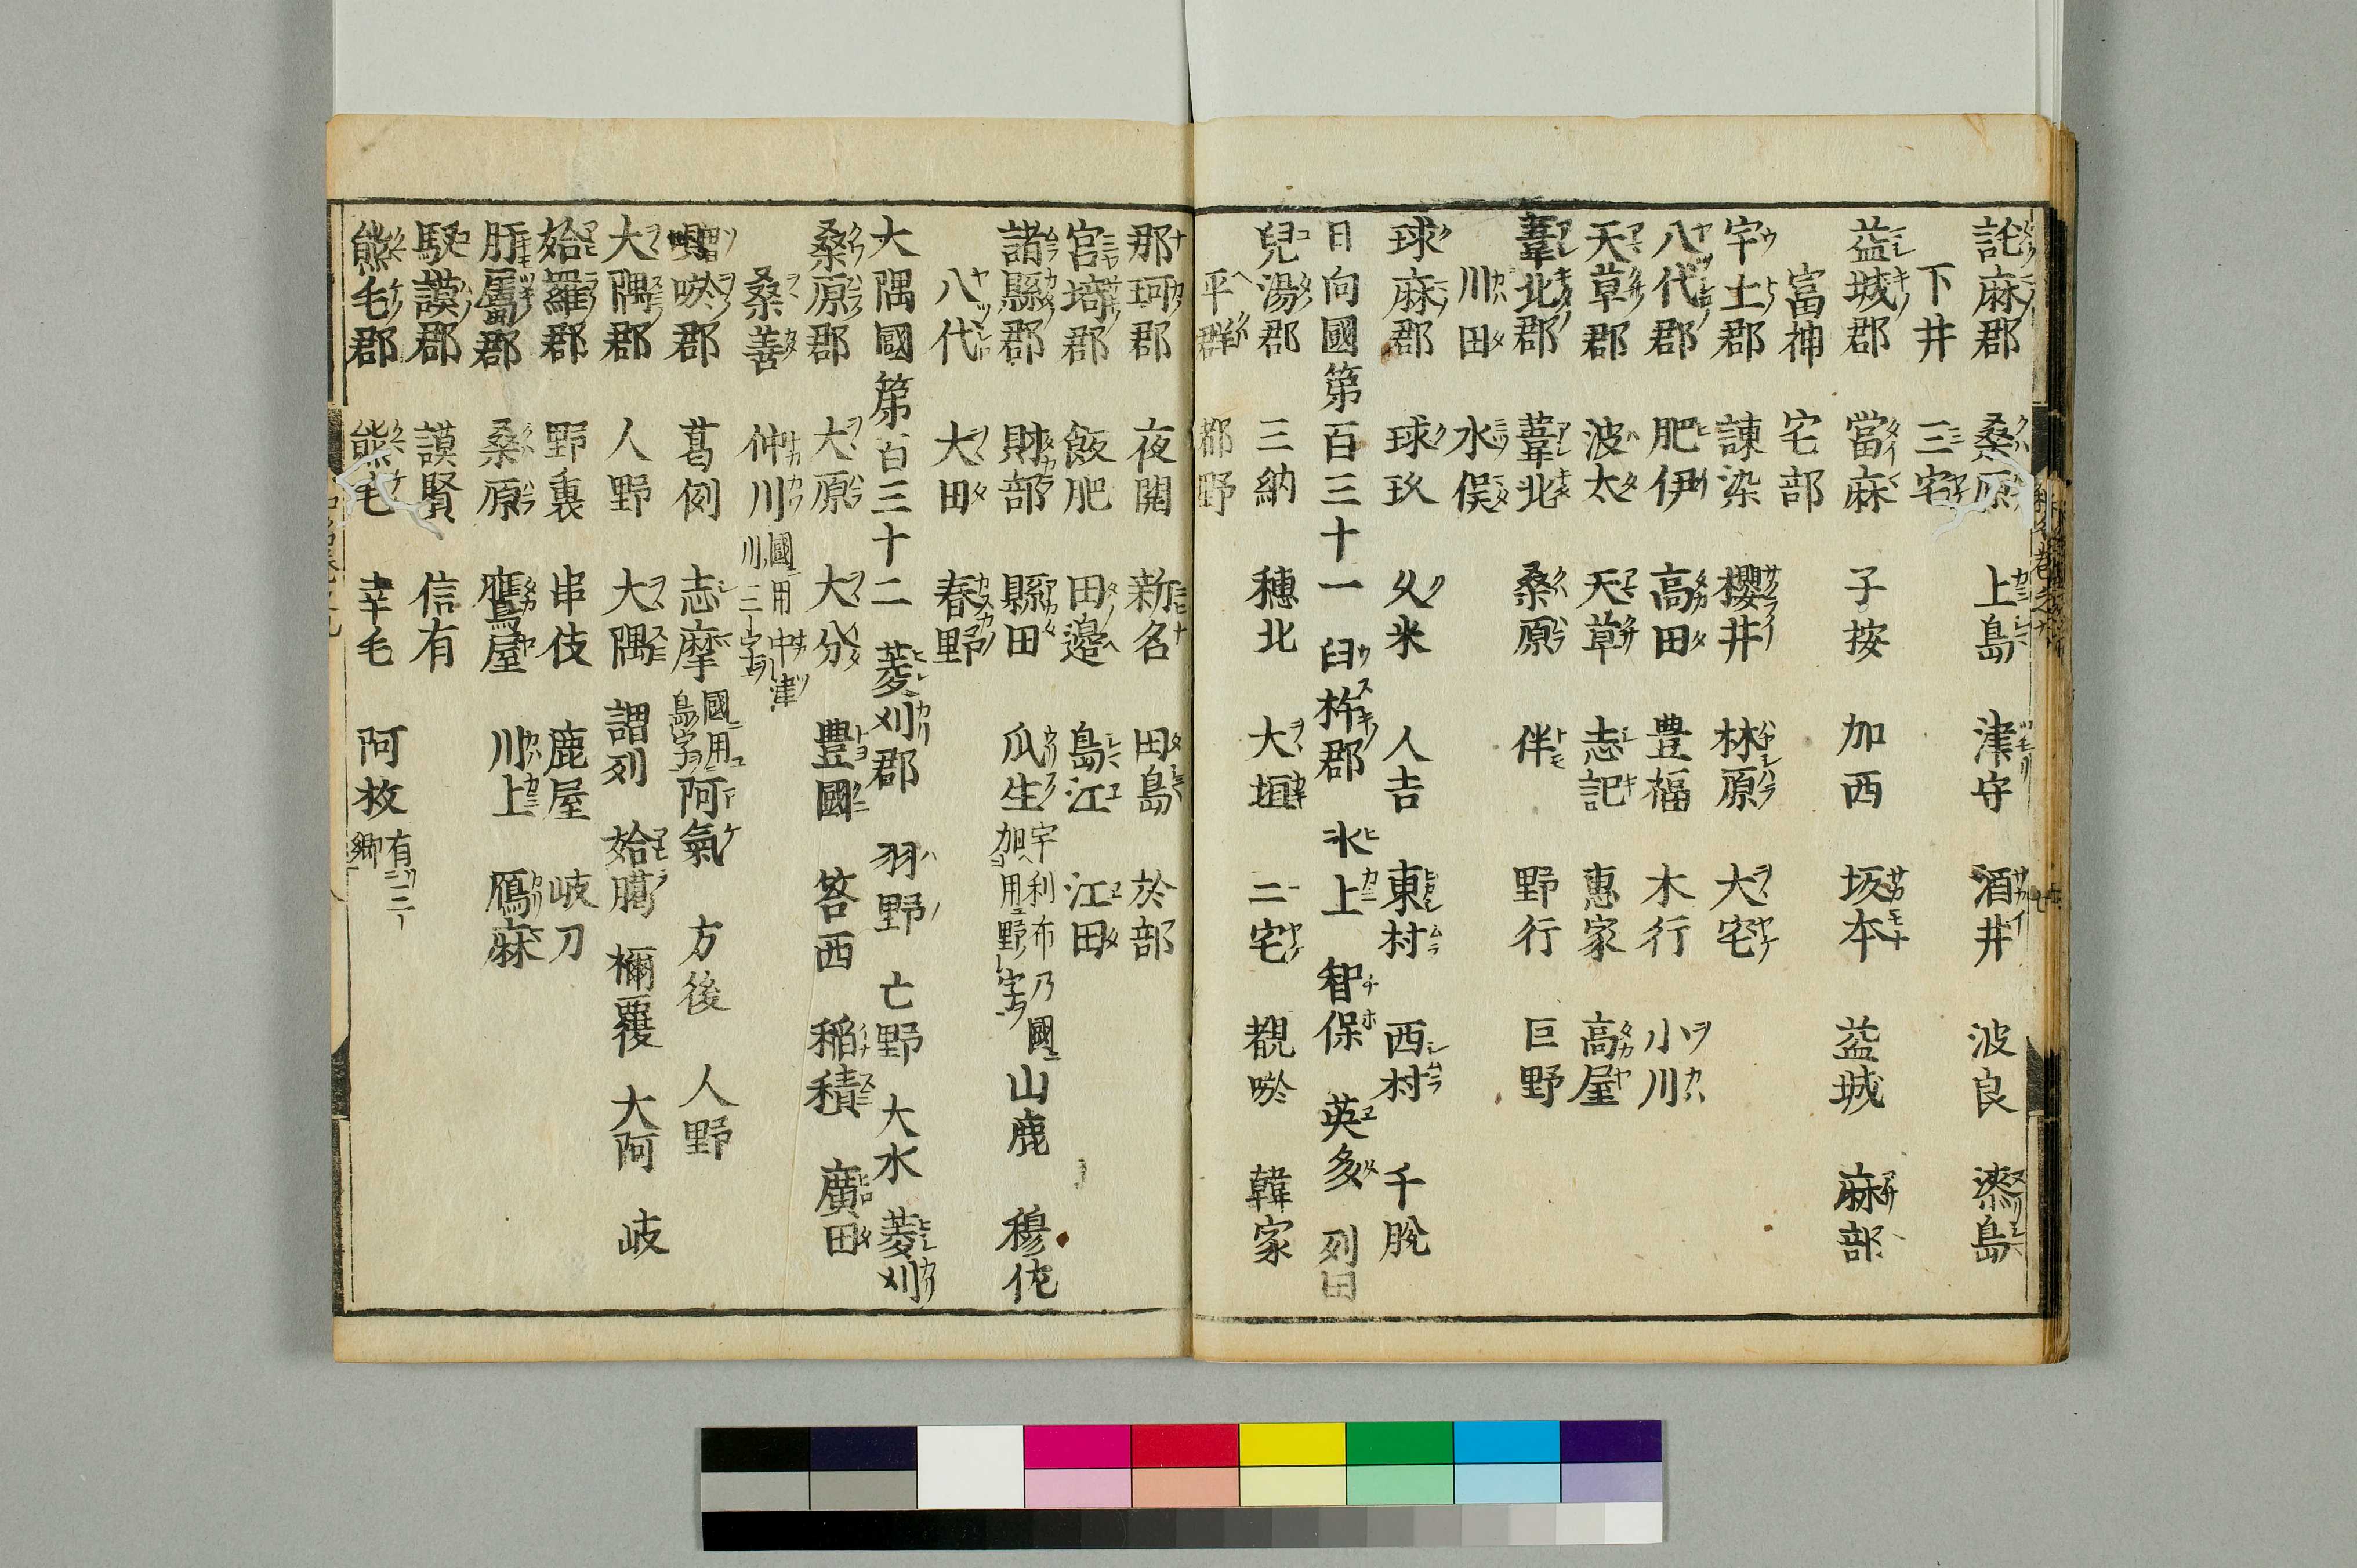 託麻郡 桑原 上島 津守 酒井 波良 漆島
下井 三宅
益城郡 當麻 子按 加西 坂本 益城 麻部
富神 宅部
宇土郡 諫染 櫻井 林原 大宅
八代郡 肥伊 高田 豊福 木行 小川
天草郡 波太 天草 志記 惠家 高屋
葦北郡 葦北 桑原 伴 野行 巨野
川田 水俣
球麻郡 球玖 久米 人吉 東村 西村 千脱
日向國第百三十一 臼杵郡 氷上 智保 英多 列田
兒湯郡 三納 穗北 大垣 三宅 覩唹 韓家
平群 都野
那珂郡 夜開 新名 田島 於部
宮埼郡 飯肥 田邊 島江 江田
諸縣郡 財部 縣田 瓜生 宇利布乃國ニ加ヘ用ユ野ノ字ヲ 山鹿 穆佐
八代 大田 春野
大隅國第百三十二 菱刈郡 羽野 亡野 大水 菱刈
桑原郡 大原 大分 豊國 答西 稲積 廣田
桑善 仲川 國ニ用中津川ノ三字ヲ
囎唹郡 葛例 志摩 國ニ用ユ島ノ字ヲ 阿氣 方後 人野
大隅郡 人野 大隅 謂列 姶臈 禰覆 大阿 岐
姶羅郡 野裏 串伎 鹿屋 岐刀
肝屬郡 桑原 鷹屋 川上 鴈麻
馭謨郡 謨賢 信有
熊毛郡 熊毛 幸毛 阿枚 有リ二ノ郷